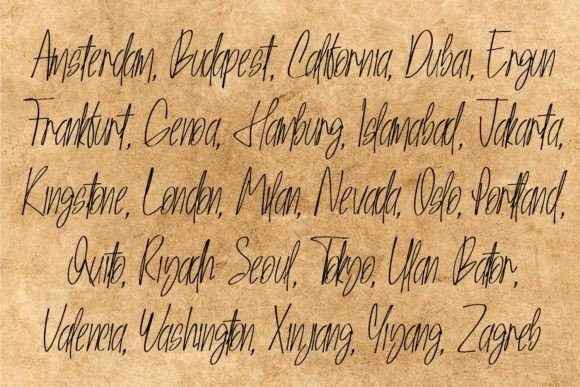 Amsterdam, Budapest, California, Dubai, Ergun
Frankfurt, Genoa, Hamburg, Islamabad, Jakarta,
Kingstone, London, Milan, Nevada, Oslo, Portland,
Quito, Riyadh Seoul, Tokyo, Ulan Bator,
Valencia, Washington, Xinjiang, Yiyang, Zagreb